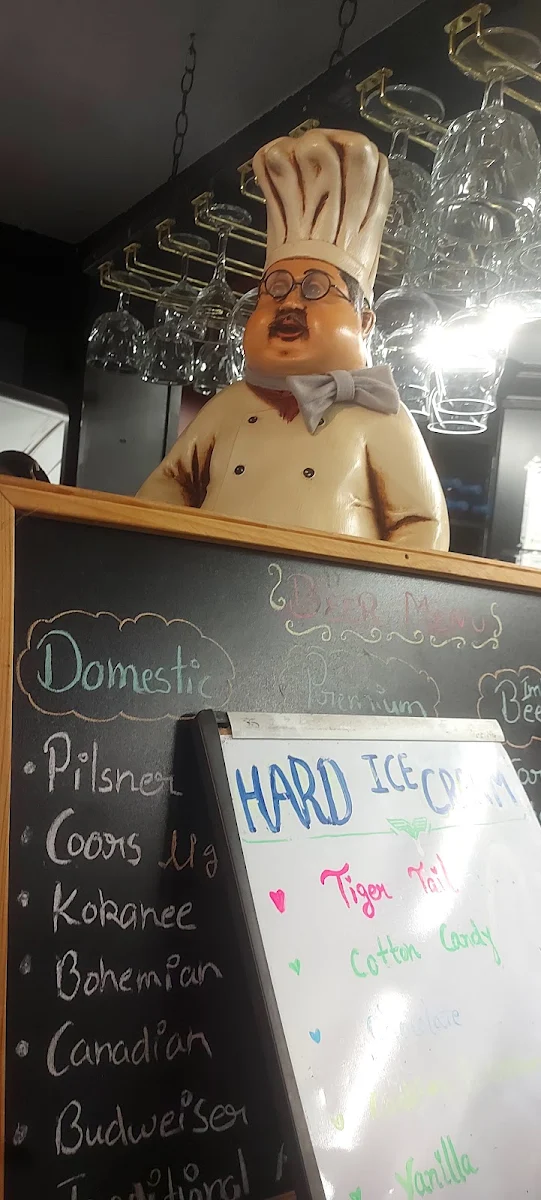 Beer Menu
Domestic
Premium
Pilsner
Coors
Kokanee
Bohemian
Canadian
Budweiser
Traditional
HARD ICE CREAM
Tiger Tail
Cotton Candy
Chocolate
Vanilla